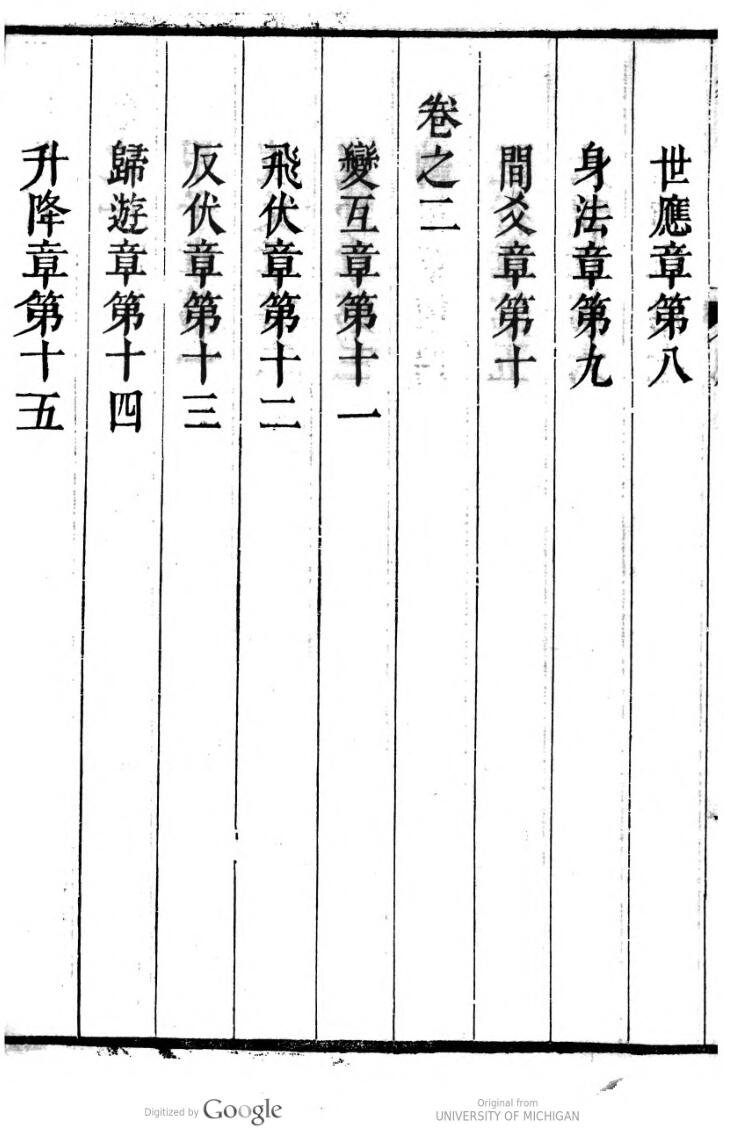 世應章第八
身法章第九
間爻章第十
卷之二
變互章第十一
飛伏章第十二
反伏章第十三
歸遊章第十四
升降章第十五
Digitized by Google
Original from
UNIVERSITY OF MICHIGAN